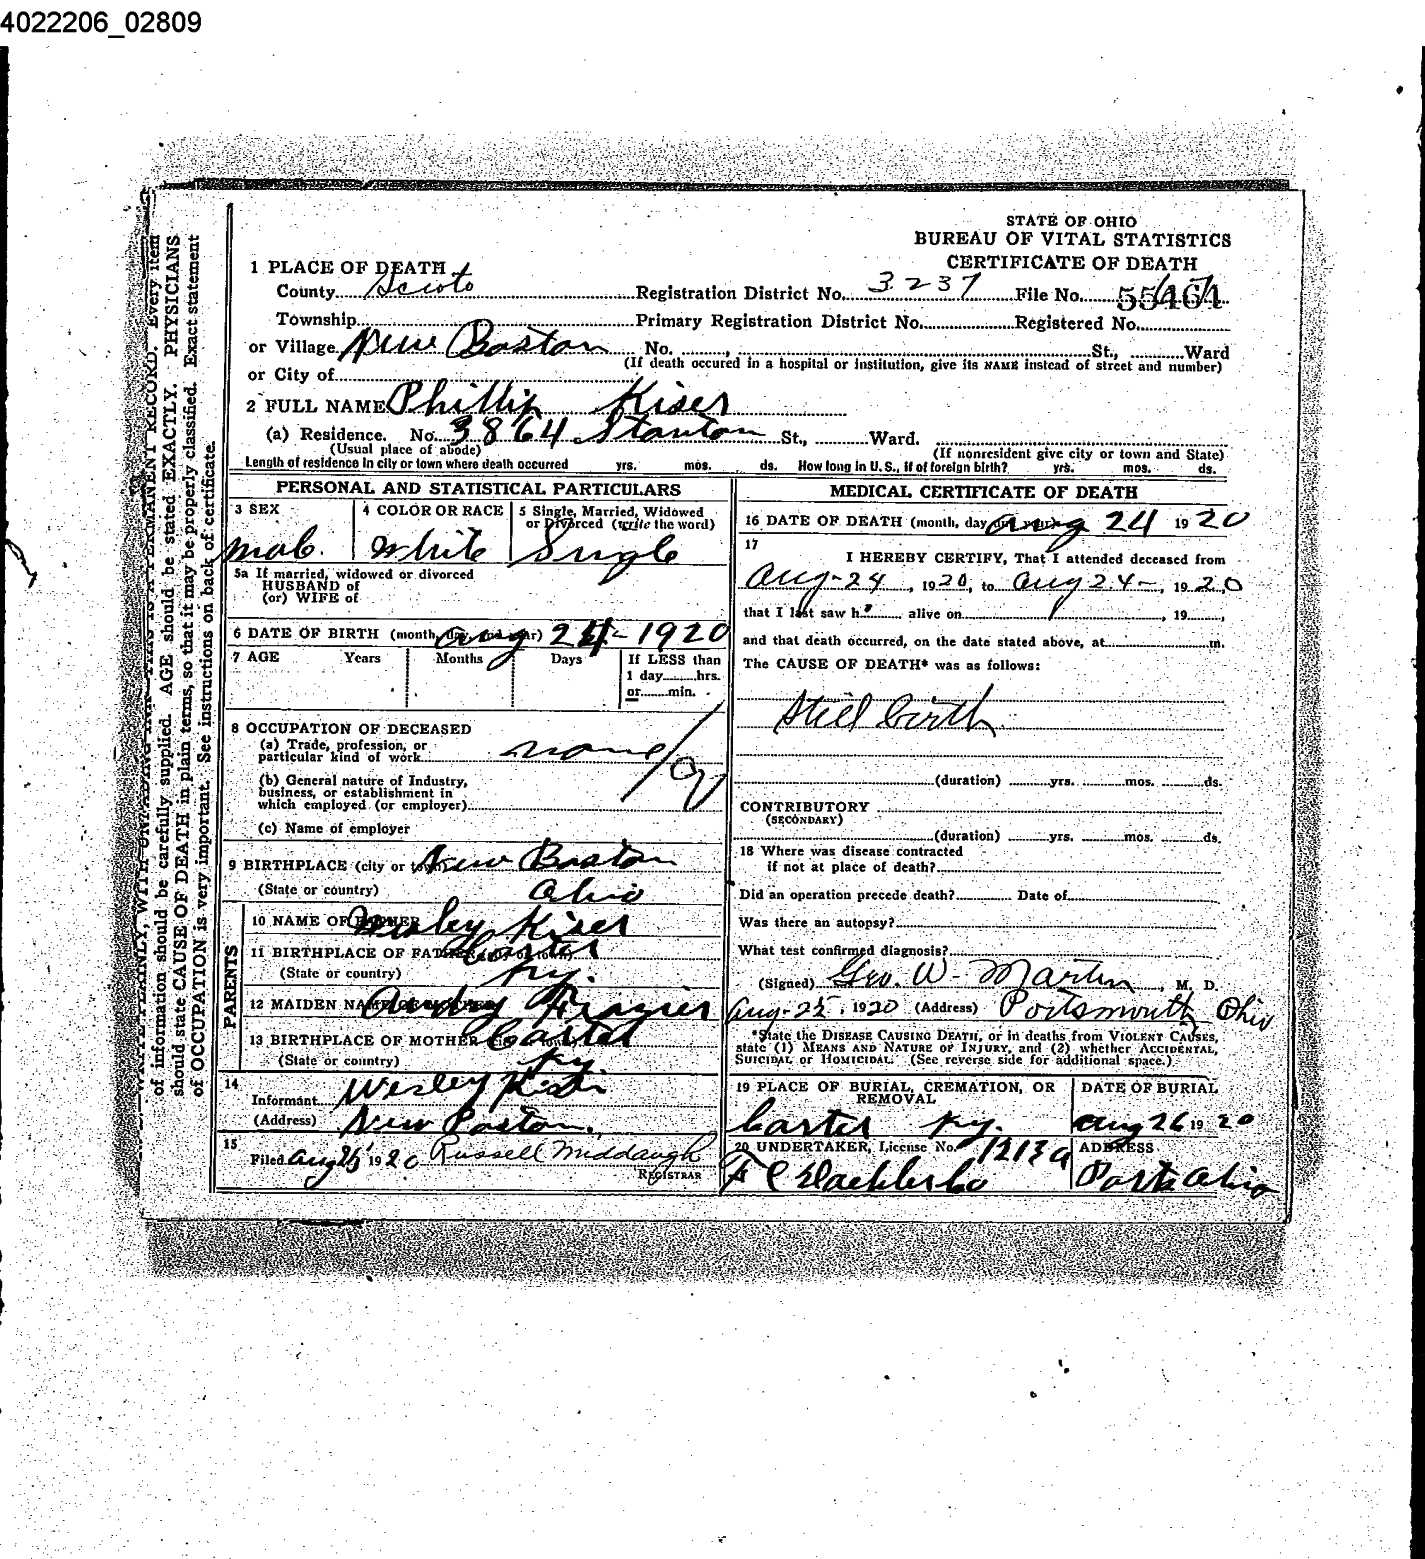 4022206_02809
STATE OF OHIO
BUREAU OF VITAL STATISTICS
CERTIFICATE OF DEATH
1 PLACE OF DEATH
County Scioto Registration District No. 3237 File No. 55461
Township Primary Registration District No. Registered No.
or Village New Boston No. , St., Ward
(If death occured in a hospital or institution, give its NAME instead of street and number)
or City of
2 FULL NAME Phillip Kiser
(a) Residence. No. 3864 Stanton St., Ward.
(Usual place of abode) (If nonresident give city or town and State)
Length of residence in city or town where death occurred yrs. mos. ds. How long in U. S., if of foreign birth? yrs. mos. ds.
PERSONAL AND STATISTICAL PARTICULARS
3 SEX 4 COLOR OR RACE 5 Single, Married, Widowed
or Divorced (write the word)
Male White Single
5a If married, widowed or divorced
HUSBAND of
(or) WIFE of
6 DATE OF BIRTH (month, day, and year) Aug 24-1920
7 AGE Years Months Days If LESS than
1 day hrs.
or min.
8 OCCUPATION OF DECEASED
(a) Trade, profession, or
particular kind of work none
(b) General nature of Industry,
business, or establishment in
which employed (or employer)
(c) Name of employer
9 BIRTHPLACE (city or town) New Boston
(State or country) Ohio
PARENTS
10 NAME OF FATHER Wesley Kiser
11 BIRTHPLACE OF FATHER (city or town) Carter
(State or country) Ky.
12 MAIDEN NAME OF MOTHER Frazier
13 BIRTHPLACE OF MOTHER (city or town) Carter
(State or country) Ky
14
Informant Wesley
(Address) New Boston.
15
Filed Aug 25 1920 Russell Middaugh
REGISTRAR
MEDICAL CERTIFICATE OF DEATH
16 DATE OF DEATH (month, day and year) Aug 24 1920
17
I HEREBY CERTIFY, That I attended deceased from
Aug-24, 1920, to Aug 24-, 1920
that I last saw h alive on , 19 ,
and that death occurred, on the date stated above, at m.
The CAUSE OF DEATH* was as follows:
Still birth
(duration) yrs. mos. ds.
CONTRIBUTORY
(SECONDARY)
(duration) yrs. mos. ds.
18 Where was disease contracted
if not at place of death?
Did an operation precede death? Date of
Was there an autopsy?
What test confirmed diagnosis?
(Signed) Geo. W. Martin, M. D.
Aug-25, 1920 (Address) Portsmouth Ohio
*State the DISEASE CAUSING DEATH, or in deaths from VIOLENT CAUSES,
state (1) MEANS AND NATURE OF INJURY, and (2) whether ACCIDENTAL,
SUICIDAL or HOMICIDAL. (See reverse side for additional space.)
19 PLACE OF BURIAL, CREMATION, OR
REMOVAL
DATE OF BURIAL
Carter Ky. Aug 26 1920
20 UNDERTAKER, License No. 1213a ADDRESS
Ports Ohio
of information should be carefully supplied. AGE should be stated EXACTLY. PHYSICIANS
should state CAUSE OF DEATH in plain terms, so that it may be properly classified. Exact statement
of OCCUPATION is very important. See instructions on back of certificate.